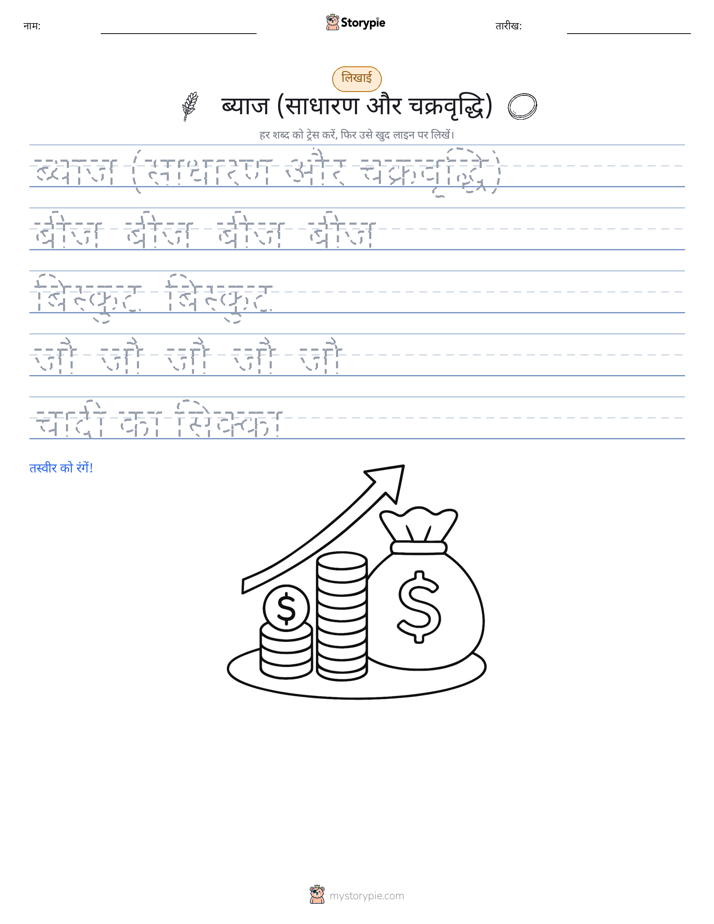 नाम: Storypie तारीख:
लिखाई
ब्याज (साधारण और चक्रवृद्धि)
हर शब्द को ट्रेस करें, फिर उसे खुद लाइन पर लिखें।
ब्याज (साधारण और चक्रवृद्धि)
बीज बीज बीज बीज
बिस्कुट बिस्कुट
जौ जौ जौ जौ जौ
चांदी का सिक्का
तस्वीर को रंगें!
$ $
mystorypie.com